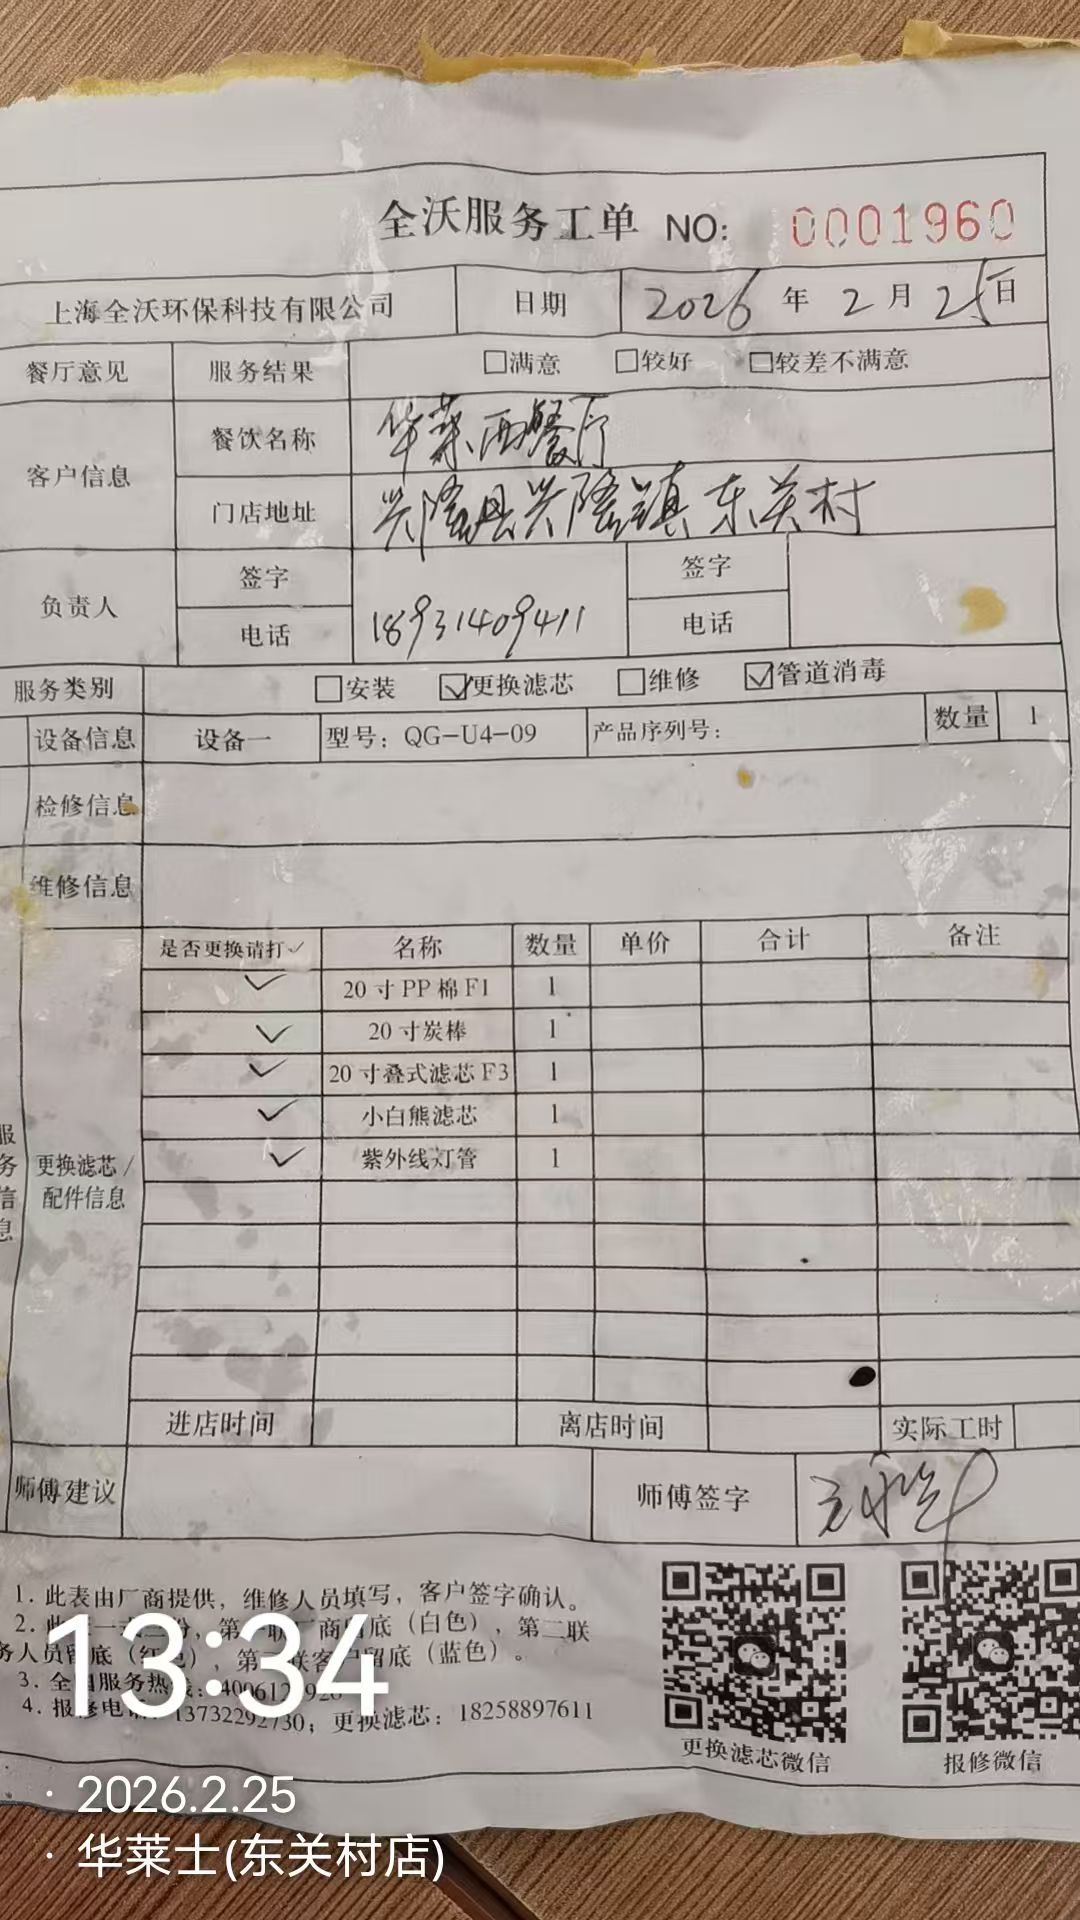 全沃服务工单 NO: 0001960
上海全沃环保科技有限公司 日期 2026 年 2 月 25 日
餐厅意见 服务结果 □满意 □较好 □较差不满意
客户信息 餐饮名称 华莱西餐厅
门店地址 兴隆县兴隆镇东关村
负责人 签字 签字
电话 18931409411 电话
服务类别 □安装 ☑更换滤芯 □维修 ☑管道消毒
设备信息 设备一 型号: QG-U4-09 产品序列号: 数量 1
检修信息
维修信息
是否更换请打✓ 名称 数量 单价 合计 备注
✓ 20寸PP棉F1 1
✓ 20寸炭棒 1
✓ 20寸叠式滤芯F3 1
✓ 小白熊滤芯 1
✓ 紫外线灯管 1
服务信息
更换滤芯/
配件信息
进店时间 离店时间 实际工时
师傅建议 师傅签字
1. 此表由厂商提供，维修人员填写，客户签字确认。
2. 此 一 份，第 联 商 底（白色），第二联
务人员留底（红色），第 联客户留底（蓝色）。
3. 全国服务热线:
4. 报修电话: 13732292730；更换滤芯：18258897611
更换滤芯微信 报修微信
13:34
· 2026.2.25
· 华莱士(东关村店)